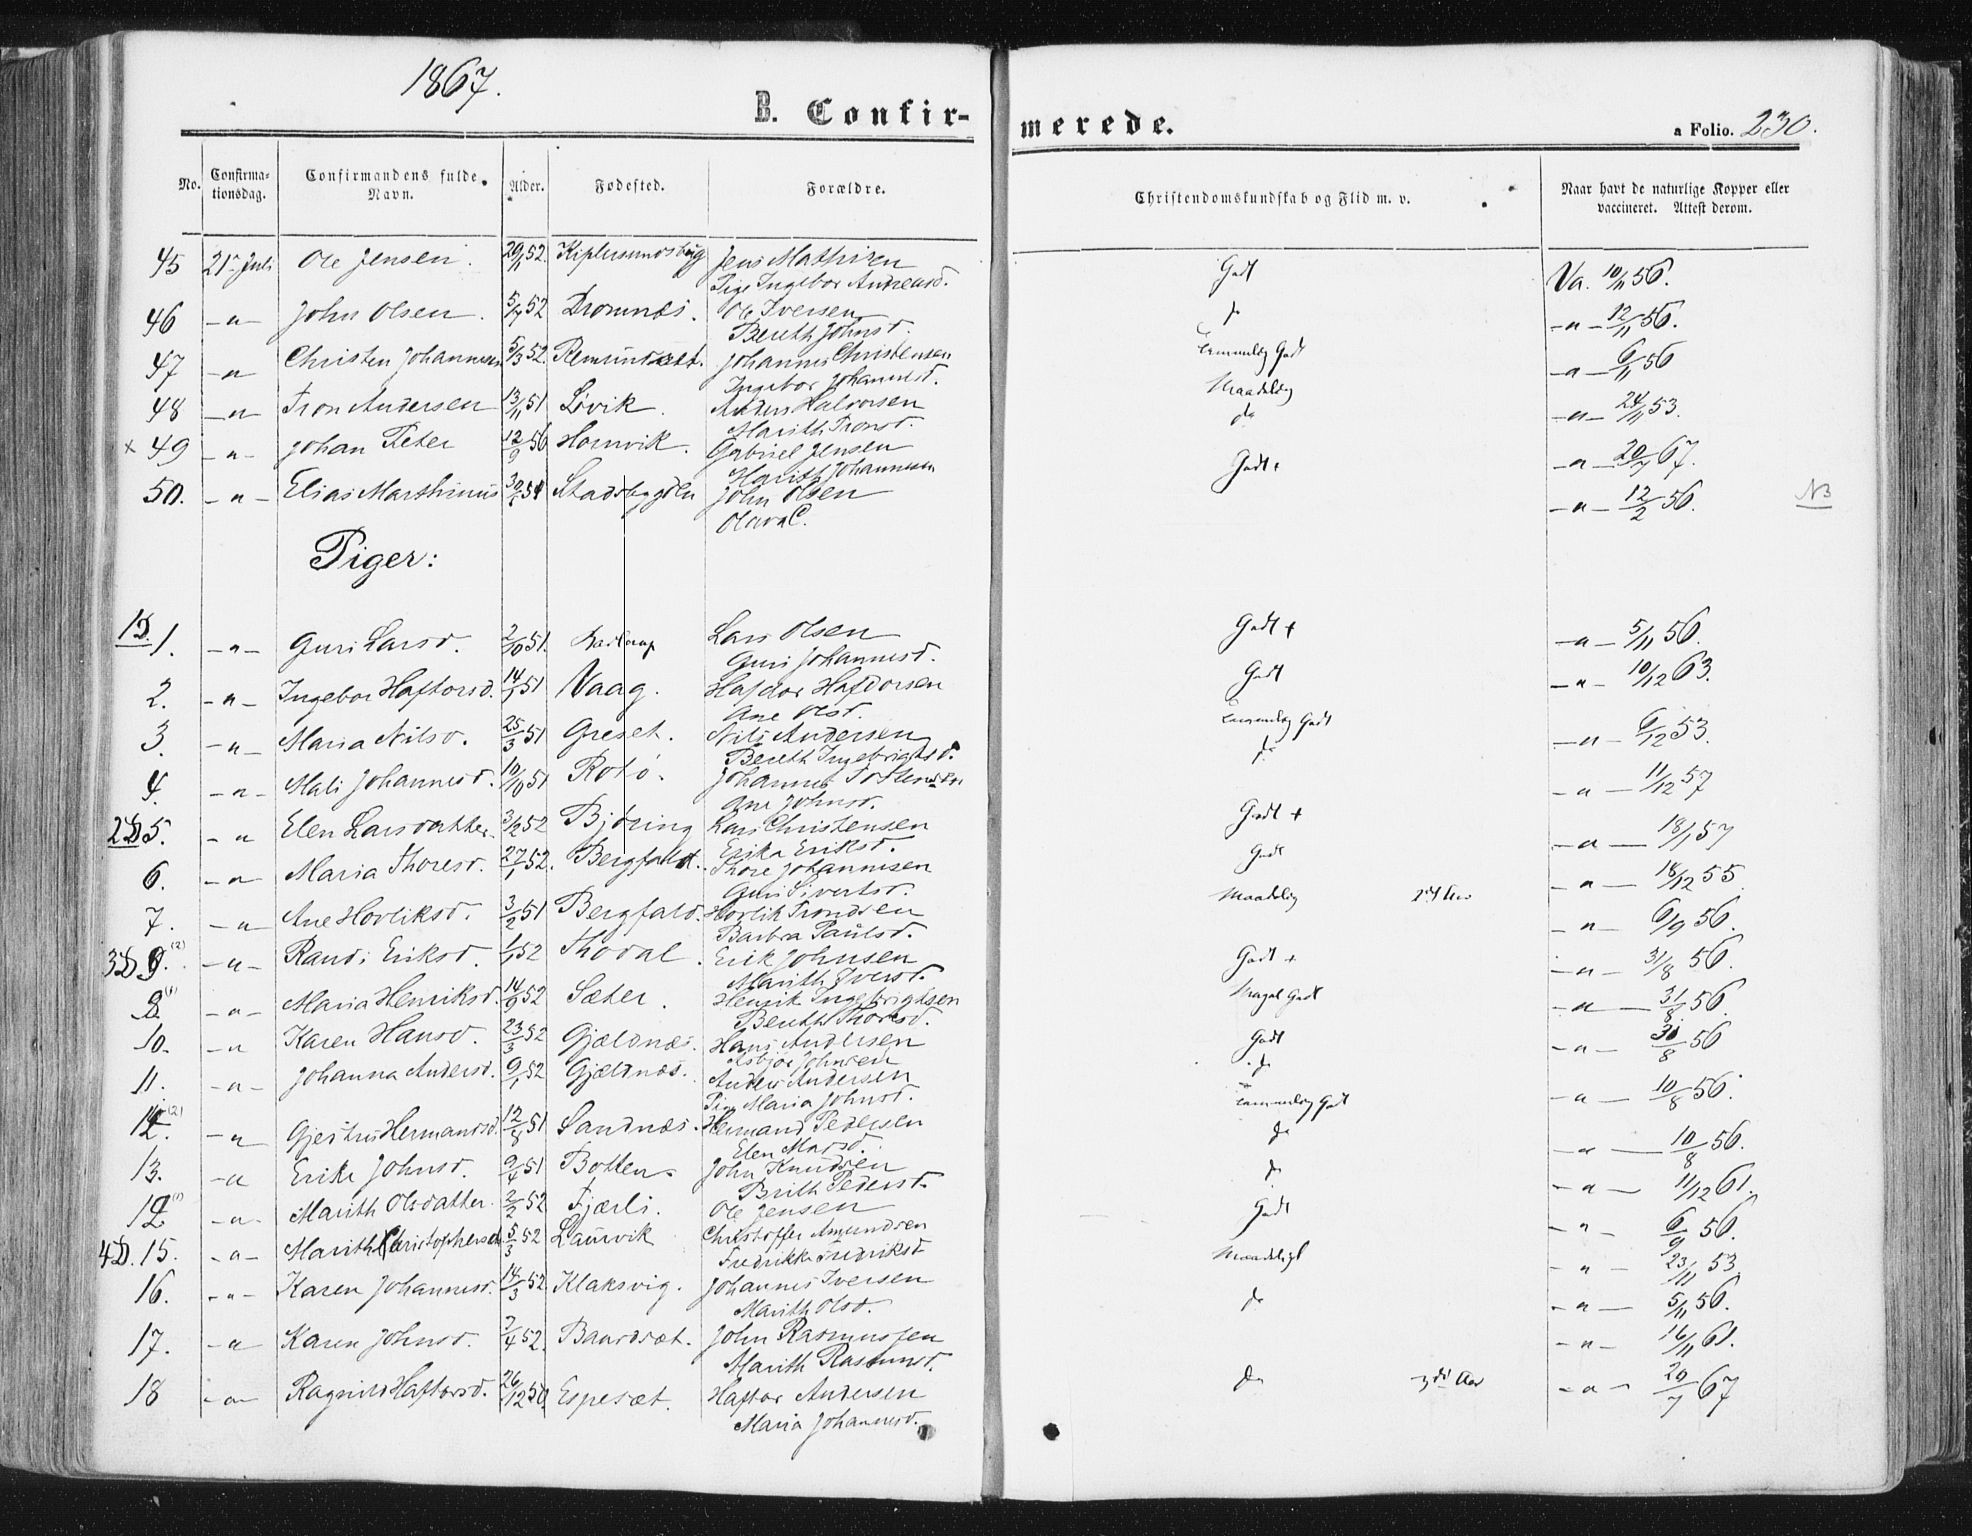 1867.
B. Confirmerede.
a Folio. 230.
No. Confirmationsdag. Confirmandens fulde Navn. Alder. Fødested. Forældre. Christendomskundskab og Flid m. v. Naar havt de naturlige Kopper eller vaccineret. Attest derom.
45 21de Juli Ole Jensen. 20/11 52. Jens Mathisen Godt Va. 10/11 56.
Pige Ingebor Andreasd.
46 -"- John Olsen. 5/7 52 Dromnes. Ole Iversen do -"- 12/11 56.
Bereth Johnsd.
47 -"- Christen Johannesen 5/3 52. Remundset. Johannes Christensen temmelig Godt -"- 6/11 56
Ingebor Johannesd.
48 -"- Tron Andersen 13/11 51 Lövik. Anders Halvorsen Maadelig -"- 24/11 53.
Marith Tronsd.
× 49 -"- Johan Peter 12/9 56 Hornvik. Gabriel Jensen do -"- 20/7 67.
Marith Johannesen
50. -"- Elias Marthinus Stadsbygden John Olsen Godt + -"- 12/2 56. NB
Olava C.
Piger:
1D. 1. -"- Guri Larsd. 2/10 51. Lars Olsen Godt + -"- 5/11 56.
Guri Johannesd.
2. -"- Ingebor Haftorsd. 14/1 51 Vaag. Hafdor Hafdorsen Godt -"- 10/12 63.
Ane Olsd.
3. -"- Maria Nilsd. 25/3 51 Greset. Nils Andersen temmelig Godt -"- 6/12 53.
Bereth Ingebrigtsd.
4. -"- Mali Johannesd. 10/10 51 Rotö. Johannes do -"- 11/12 57
Ane Johnsd.
2D 5. -"- Elen Larsdatter 3/12 52 Björing Lars Christensen Godt + -"- 18/1 57
Erika Eriksd.
6. -"- Maria Thoresd. 27/1 52. Bergfald. Thore Johannesen Godt -"- 18/12 55
Guri Sivertsd.
7. -"- Ane Hovliksd. 3/2 51 Bergfald. Hovlik Trondsen Maadelig 2det Aar -"- 6/9 56.
Barbra Paulsd.
3D 9. (2) -"- Randi Eriksd. 1/1 52 Thodal. Erik Johnsen Godt + -"- 31/8 56.
Marith Iversd.
8 (1) -"- Maria Henriksd. 14/9 52 Sæter. Henrik Ingebrigtsen Meget Godt -"- 31/8 56.
Bereth Thoresd.
10. -"- Karen Hansd. 23/3 52 Gjeldnæs. Hans Andersen Godt -"- 31/8 56
Asbjør Johnsen
11. -"- Johanna Andersd. 9/1 52 Gjeldnæs. Anders Andersen do -"- 10/8 56.
Pige Maria Johnsd.
14. (2) -"- Gjertrud Hermandsd. 12/8 51 Sandnæs. Hermand Pedersen temmelig Godt -"- 10/8 56.
Elen Marsd.
13. -"- Erike Johnsd. 9/4 51 Botten. John Knudsen do -"- 11/12 61.
Brith Pedersd.
12 (1) -"- Marith Olsdatter. 2/2 52 Fjærli. Ole Jensen Godt -"- 6/9 56.
4D. 15. -"- Marith Christophersdr 5/3 52 Laurvik Christoffer Amundsen Maadeligt -"- 23/11 53
Fredrikke Fredriksd
16. -"- Karen Johannesd. 14/3 52. Klaksvig. Johannes Iversen do -"- 5/11 56.
Marith Olsd.
17. -"- Karen Johnsd. 7/4 52. Baardsæt. John Rasmussen -"- 16/11 61.
Marith Rasmusd.
18 -"- Ragnild Haftorsd. 26/12 50. Espesæt. Haftor Andersen do 3die Aar -"- 20/7 67
Maria Johannesd.